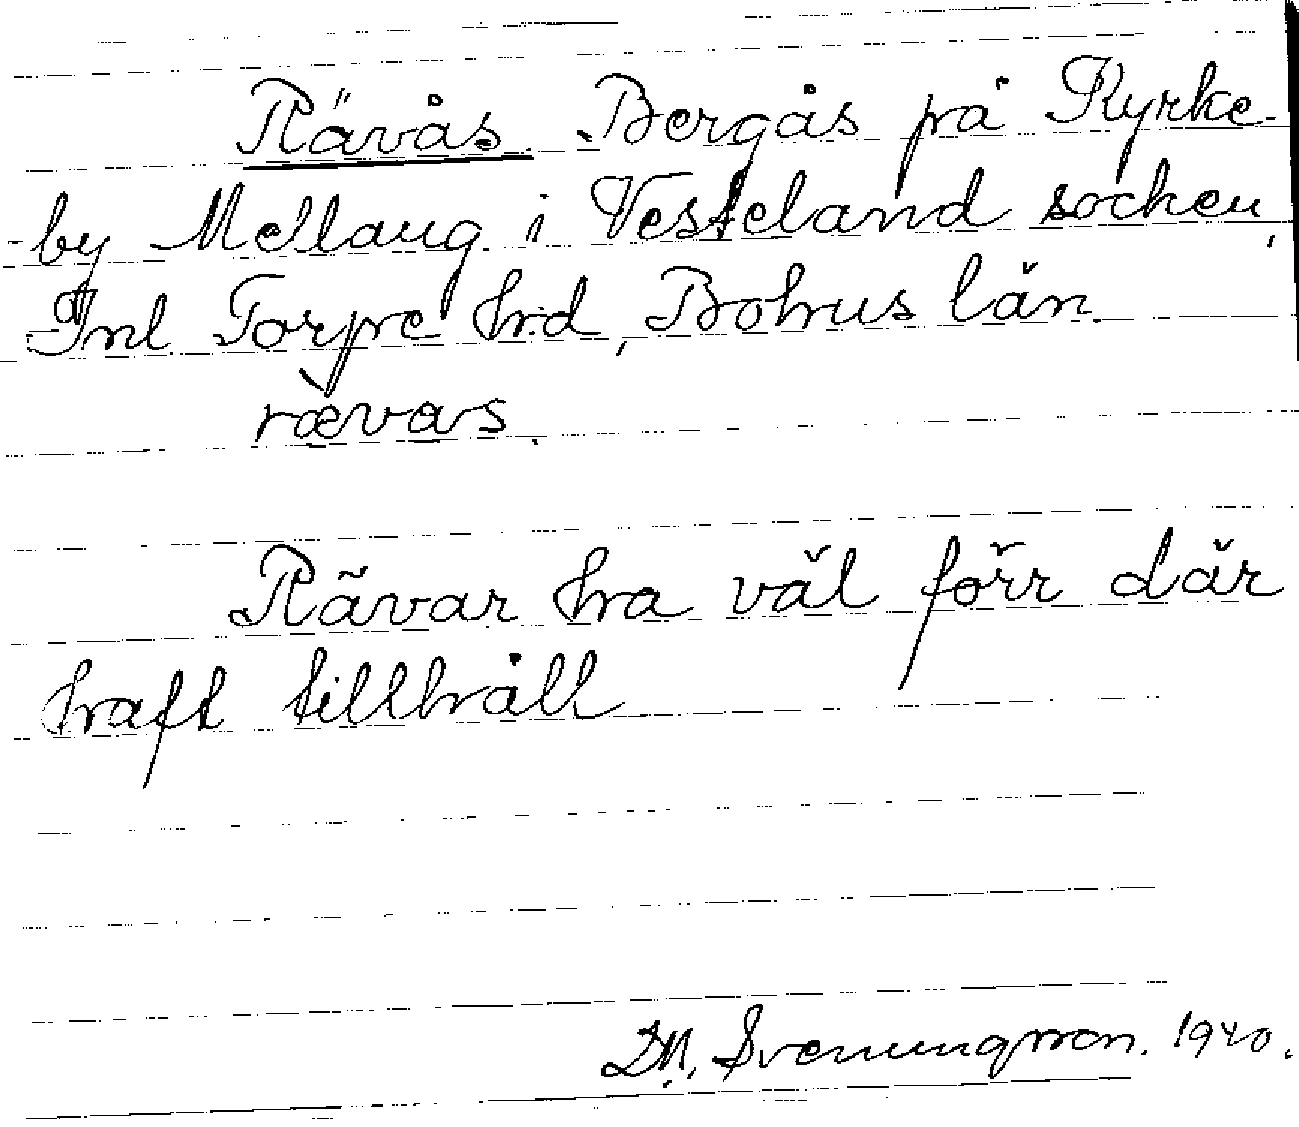 Rävås. Bergås på Kyrke-
by Mellang. i Vesteland socken,
Inl Torpe hrd, Bohus län.
rævas.
Rävar ha väl förr där
haft tillhåll
D.N. Svenungsson. 1940.